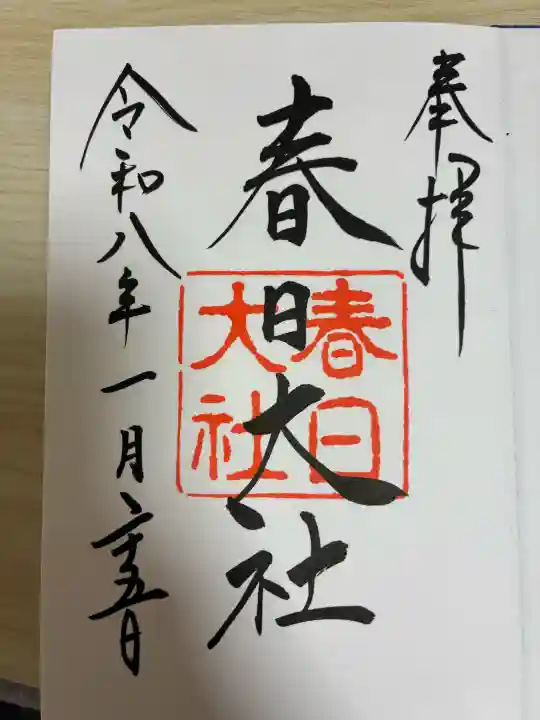 奉拝
春日大社
春日
大社
令和八年一月二十五日